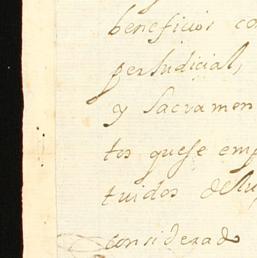 beneficios co
perJudicial,
y Sacramen
tos quese emp
tuidos dellu
considerad